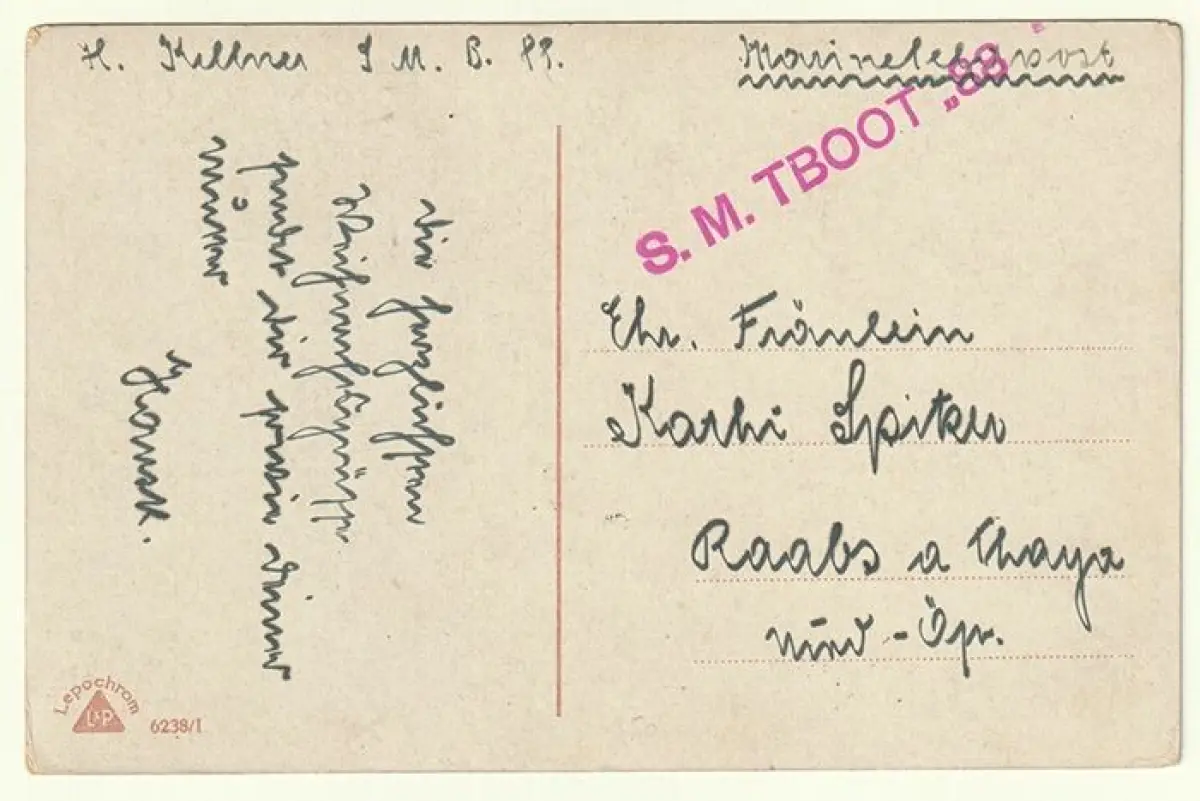 H. Kellner S. M. B. 88.
Marinefeldpost
S. M. TBOOT „88"
Die herzlichsten
Weihnachtsgrüße
sendet dir dein
immer
Hansl.
Ehr. Fräulein
Kathi Spitzer
Raabs a Thaya
Nied - Öst.
Lepochrom
L&P
6238/I